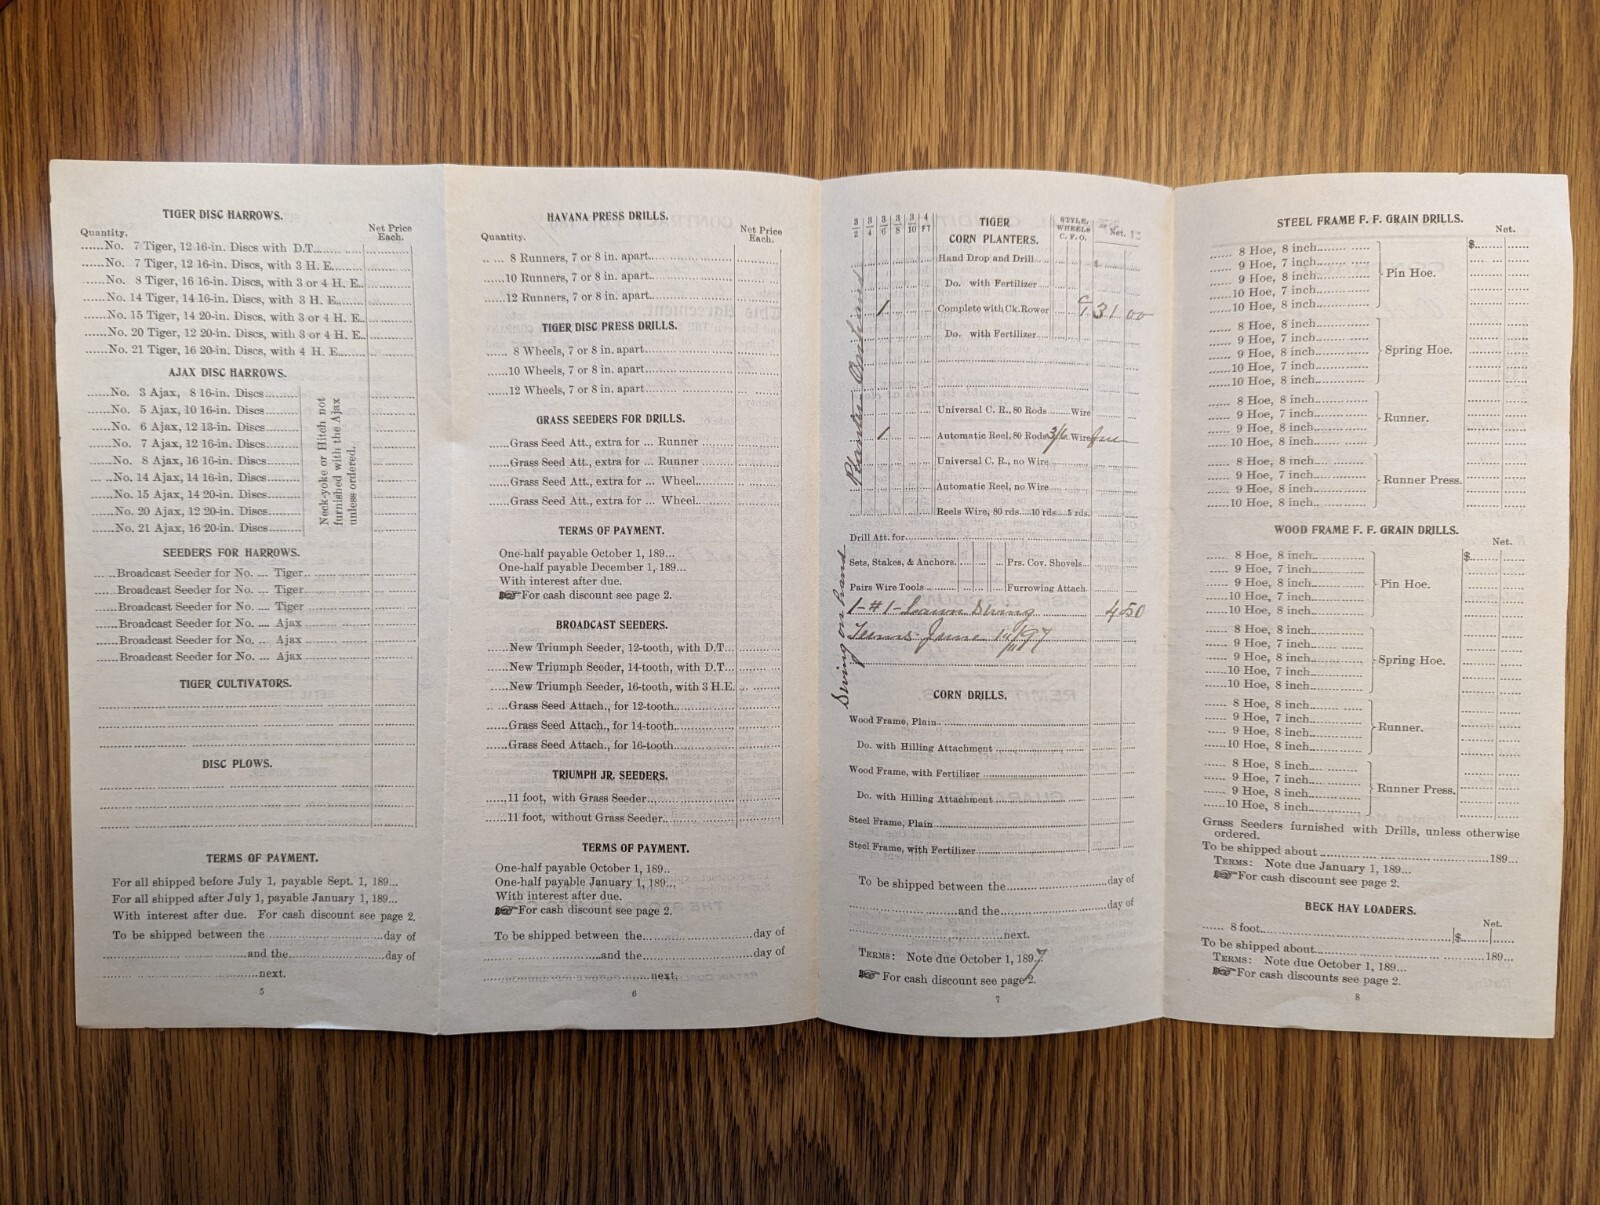 TIGER DISC HARROWS.
Quantity. Net Price Each.
......No. 7 Tiger, 12 16-in. Discs with D.T......
......No. 7 Tiger, 12 16-in. Discs, with 3 H. E......
......No. 8 Tiger, 16 16-in. Discs, with 3 or 4 H. E..
......No. 14 Tiger, 14 16-in. Discs, with 3 H. E......
......No. 15 Tiger, 14 20-in. Discs, with 3 or 4 H. E..
......No. 20 Tiger, 12 20-in. Discs, with 3 or 4 H. E..
......No. 21 Tiger, 16 20-in. Discs, with 4 H. E......
AJAX DISC HARROWS.
......No. 3 Ajax, 8 16-in. Discs........
......No. 5 Ajax, 10 16-in. Discs........
......No. 6 Ajax, 12 13-in. Discs........
......No. 7 Ajax, 12 16-in. Discs........
......No. 8 Ajax, 16 16-in. Discs........
......No. 14 Ajax, 14 16-in. Discs........
......No. 15 Ajax, 14 20-in. Discs........
......No. 20 Ajax, 12 20-in. Discs........
......No. 21 Ajax, 16 20-in. Discs........
Neck-yoke or Hitch not
furnished with the Ajax
unless ordered.
SEEDERS FOR HARROWS.
......Broadcast Seeder for No. .... Tiger........
......Broadcast Seeder for No. .... Tiger........
......Broadcast Seeder for No. .... Tiger........
......Broadcast Seeder for No. .... Ajax........
......Broadcast Seeder for No. .... Ajax........
......Broadcast Seeder for No. .... Ajax........
TIGER CULTIVATORS.
DISC PLOWS.
TERMS OF PAYMENT.
For all shipped before July 1, payable Sept. 1, 189...
For all shipped after July 1, payable January 1, 189...
With interest after due. For cash discount see page 2.
To be shipped between the........................day of
........................and the........................day of
........................next.
5
HAVANA PRESS DRILLS.
Quantity. Net Price Each.
...... 8 Runners, 7 or 8 in. apart........
......10 Runners, 7 or 8 in. apart........
......12 Runners, 7 or 8 in. apart........
TIGER DISC PRESS DRILLS.
...... 8 Wheels, 7 or 8 in. apart........
......10 Wheels, 7 or 8 in. apart........
......12 Wheels, 7 or 8 in. apart........
GRASS SEEDERS FOR DRILLS.
......Grass Seed Att., extra for ... Runner ......
......Grass Seed Att., extra for ... Runner ......
......Grass Seed Att., extra for ... Wheel......
......Grass Seed Att., extra for ... Wheel......
TERMS OF PAYMENT.
One-half payable October 1, 189...
One-half payable December 1, 189...
With interest after due.
☞For cash discount see page 2.
BROADCAST SEEDERS.
......New Triumph Seeder, 12-tooth, with D.T...
......New Triumph Seeder, 14-tooth, with D.T...
......New Triumph Seeder, 16-tooth, with 3 H.E.
......Grass Seed Attach., for 12-tooth........
......Grass Seed Attach., for 14-tooth........
......Grass Seed Attach., for 16-tooth........
TRIUMPH JR. SEEDERS.
......11 foot, with Grass Seeder........
......11 foot, without Grass Seeder........
TERMS OF PAYMENT.
One-half payable October 1, 189..
One-half payable January 1, 189...
With interest after due.
☞For cash discount see page 2.
To be shipped between the........................day of
........................and the........................day of
........................next.
6
3/2 3/4 3/6 3/8 3/10 4 FT
TIGER
CORN PLANTERS.
STYLE, WHEELS C. F. O.
Net.
Hand Drop and Drill.... $
Do. with Fertilizer....
1 Complete with Ck. Rower C 31 00
Do. with Fertilizer....
Universal C. R., 80 Rods......Wire
1 Automatic Reel, 80 Rods 3/6 Wire
Universal C. R., no Wire....
Automatic Reel, no Wire....
Reels Wire, 80 rds....10 rds....5 rds.
Planter
Drill Att. for........................
Sets, Stakes, & Anchors. Prs. Cov. Shovels......
Pairs Wire Tools ...... Furrowing Attach
1-#1-Lawn Swing 4 50
Terms June 1st/97
Swing on hand
CORN DRILLS.
Wood Frame, Plain........
Do. with Hilling Attachment ........
Wood Frame, with Fertilizer ........
Do. with Hilling Attachment ........
Steel Frame, Plain........
Steel Frame, with Fertilizer........
To be shipped between the........................day of
........................and the........................day of
........................next.
TERMS: Note due October 1, 1897
☞ For cash discount see page 2.
7
STEEL FRAME F. F. GRAIN DRILLS.
Net.
...... 8 Hoe, 8 inch........ $
...... 9 Hoe, 7 inch........
...... 9 Hoe, 8 inch........ Pin Hoe.
......10 Hoe, 7 inch........
......10 Hoe, 8 inch........
...... 8 Hoe, 8 inch........
...... 9 Hoe, 7 inch........
...... 9 Hoe, 8 inch........ Spring Hoe.
......10 Hoe, 7 inch........
......10 Hoe, 8 inch........
...... 8 Hoe, 8 inch........
...... 9 Hoe, 7 inch........ Runner.
...... 9 Hoe, 8 inch........
......10 Hoe, 8 inch........
...... 8 Hoe, 8 inch........
...... 9 Hoe, 7 inch........ Runner Press.
...... 9 Hoe, 8 inch........
......10 Hoe, 8 inch........
WOOD FRAME F. F. GRAIN DRILLS.
Net.
...... 8 Hoe, 8 inch........ $
......10 Hoe, 7 inch........
...... 9 Hoe, 8 inch........ Pin Hoe.
......10 Hoe, 7 inch........
......10 Hoe, 8 inch........
...... 8 Hoe, 8 inch........
...... 9 Hoe, 7 inch........
...... 9 Hoe, 8 inch........ Spring Hoe.
......10 Hoe, 7 inch........
......10 Hoe, 8 inch........
...... 8 Hoe, 8 inch........
...... 9 Hoe, 7 inch........ Runner.
...... 9 Hoe, 8 inch........
......10 Hoe, 8 inch........
...... 8 Hoe, 8 inch........
...... 9 Hoe, 7 inch........ Runner Press.
...... 9 Hoe, 8 inch........
......10 Hoe, 8 inch........
Grass Seeders furnished with Drills, unless otherwise
ordered.
To be shipped about ........................189...
TERMS: Note due January 1, 189...
☞For cash discount see page 2.
BECK HAY LOADERS.
Net.
...... 8 foot........................ $
To be shipped about........................189...
TERMS: Note due October 1, 189...
☞For cash discounts see page 2.
8